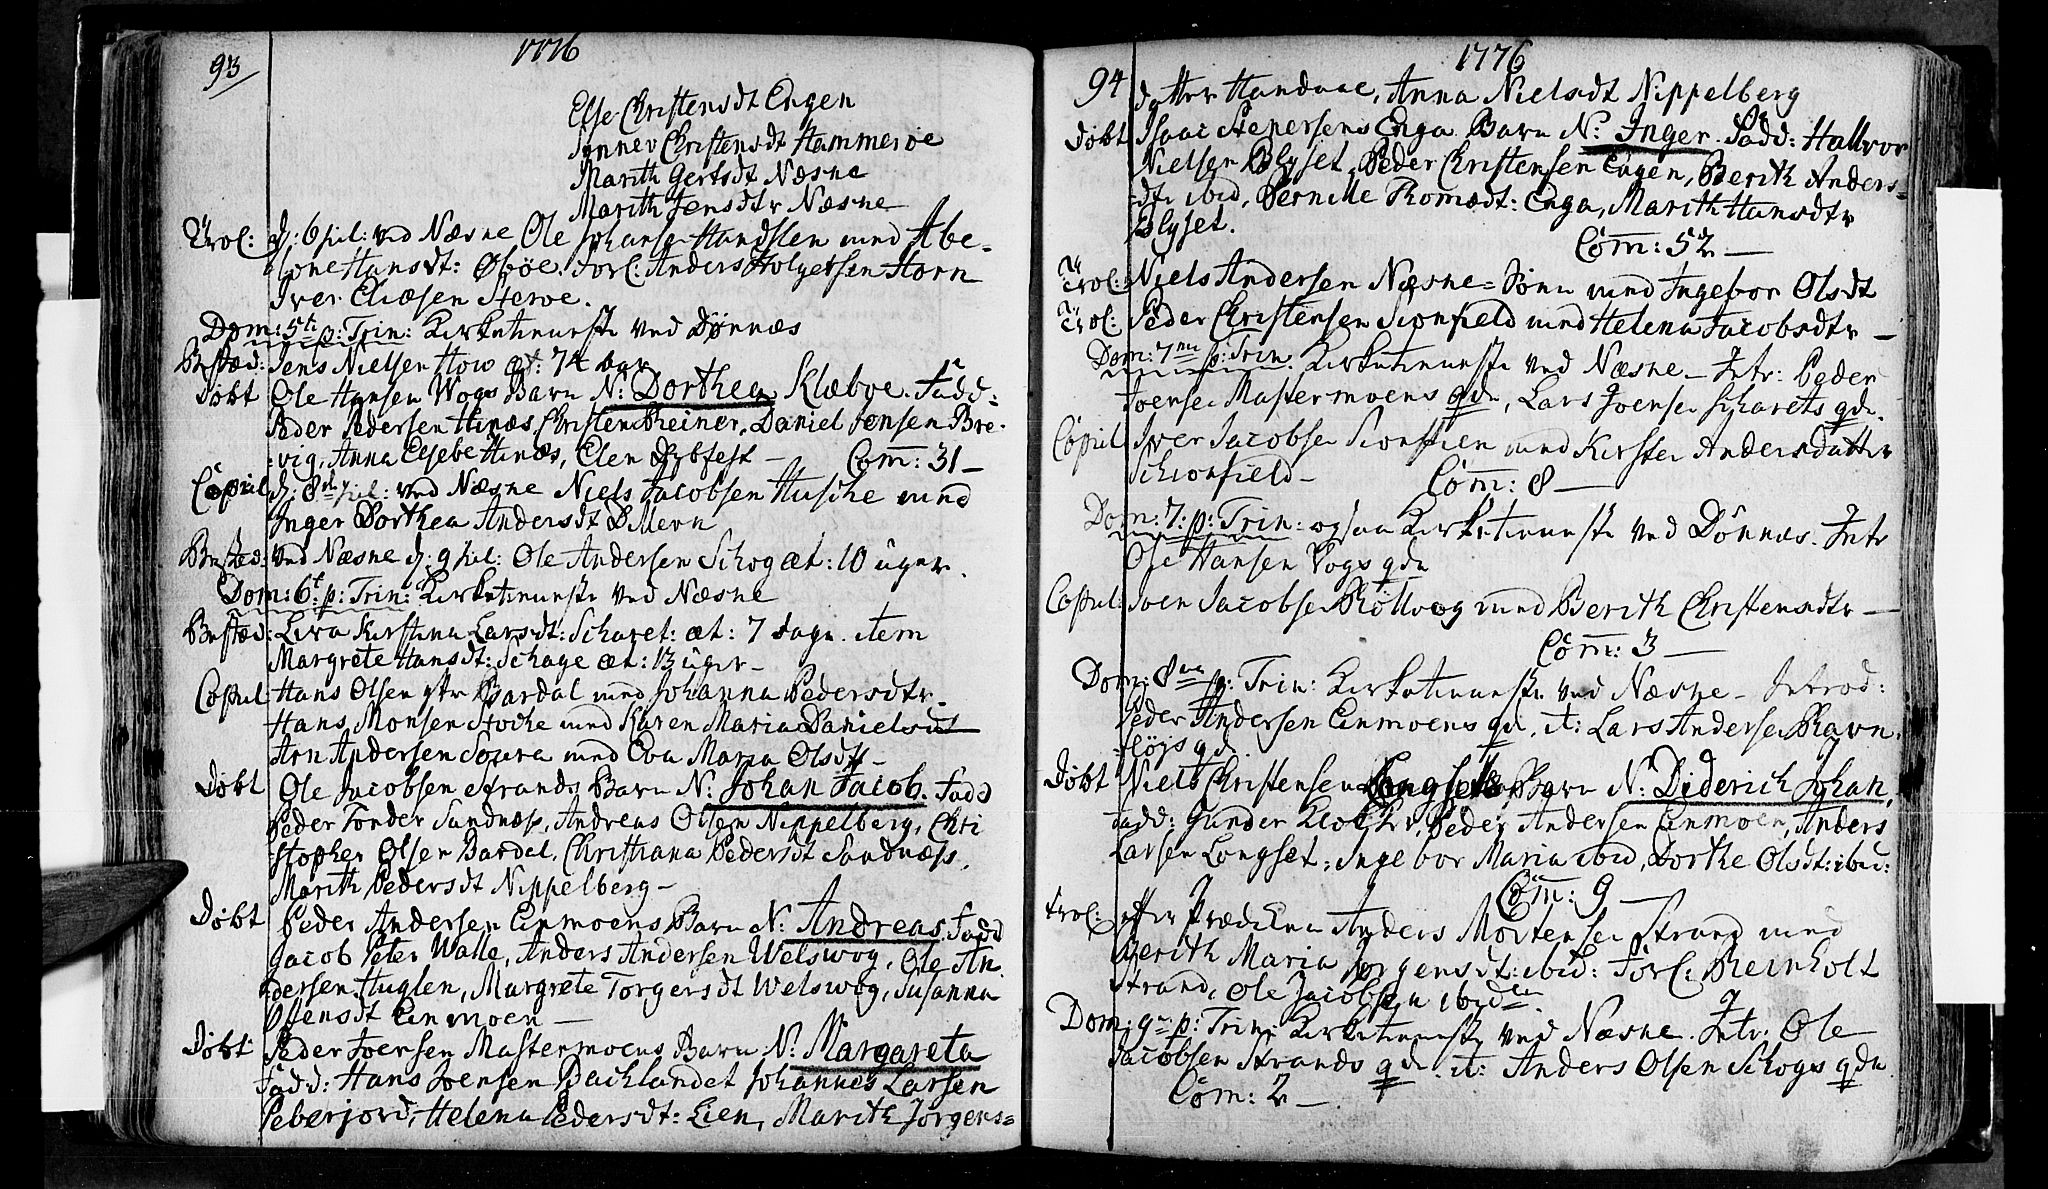 93
1776
Else Christensdt Engen
Sønnev Christensdt Hammerøe
Marith Gertsdt Næsne
Marith Jensdtr Næsne
Trol: d: 6 Jul: ved Næsne Ole Johanse Handsten med Abe-
lone Hansdt: Øbøe. Forl: Anders Holgersen Horn
Iver Eliæsen Sterve.
Dom: 5te p: Trin: Kirketieneste ved Dønnæs
Besteed: Jens Nielsen How æt: 74 aar
Døbt Ole Hansen Wogs Barn N: Dorthea Klæboe. Fadd:
Peder Pedersen Hinæs, Christen Reiner, Daniel Jensen Bre-
vig, Anna Elsebe Hinæs, Elen Dybfest – Com: 31 –
Copul d: 8de Jul: ved Næsne Niels Jacobsen Husche med
Inger Dorthea Andersdt
Besteed: ved Næsne d: 9 Jul: Ole Andersen Schog æt: 10 uger.
Dom: 6te p: Trin: Kirketieneste ved Næsne
Besteed: Liva Kirstina Larsdt: Scharet: æt: 7 dage. item
Margrete Hansdt: Schage æt: 13 uger –
Copul Hans Olsen Bardal med Johanna Pedersdtr.
Hans Monsen Stocke med Karen Maria Danielsdt
Arn Andersen Soura med Eva Maria Olsdt –
Døbt Ole Jacobsen Strands Barn N: Johan Jacob. Fadd
Peder Tonder Sundnæss, Andreas Olsen Nippelberg, Chri
stopher Olsen Bardal, Christiana Pedersdt Sandnæss,
Marith Pedersdt Nippelberg –
Døbt Peder Andersen Einmoens Barn N: Andreas. Fadd
Jacob Peter Walle, Anders Andersen Welswog, Ole An
dersen Huglen, Margrete Torgersdt Welswog, Susanna
Ofensdt Einmoen –
Døbt Peder Joensen Mastermoens Barn N: Margareta
Fadd: Hans Joensen Backlandet Johannes Larsen
Peberjord, Helena Pedersdt: Lien, Marith Jørgens=
1776
94 datter Handnae, Anna Nielsdt Nippelberg
Døbt Isaac Stepersens Enga Barn N: Inger. Fadd: Hallvor
Nielsen Blyset, Peder Christensen Engen, Berith Anders=
dtr ibid, Pernille Thomædt: Enga, Marith Hansdtr
Blyset.
Com: 52 –
Trol: Niels Andersen Næsne= Sønn med Ingebor Olsdt
Trol: Peder Christensen Sionfield med Helena Jacobsdtr –
Dom: 7me p: Trin. Kirketieneste ved Næsne – Intr: Peder
Joense Mastermoens qde, Lars Joense Scharets qde.
Copul Iver Jacobse med Kirsten Andersdatter
Schionfield – Com: 8 –
Dom: 7: p: Trin: ogsaa Kirketieneste ved Dönnæs. Intr
Ole Hansen Vogs qde
Copul: Joen Jacobse Röllvog med Berith Christensdtr –
Com: 3 –
Dom: 8va p: Trin: Kirketieneste ved Næsne – Introd:
Peder Andersen Einmoens qde, it: Lars Anderse Ravn
fløjs qde
Døbt Niels Christensen Barn N: Diderich Johan,
Fadd: Gunder Klocker, Peder Andersen Einmoen, Anders
Larsen Longset, Ingebor Maria ibid, Dorthe Olsdt: ibid:
Com: 9 –
Trol: efter Prædiken Anders Mortense Strand med
Berith Maria Jørgensdt: ibid: Forl: Reinholt
Strand, Ole Jacobsen ibidem
Dom: 9na p: Trin: Kirketieneste ved Næsne. Intr: Ole
Jacobsen Strands qde. it: Anders Olsen Schogs qde
Com: 2 –